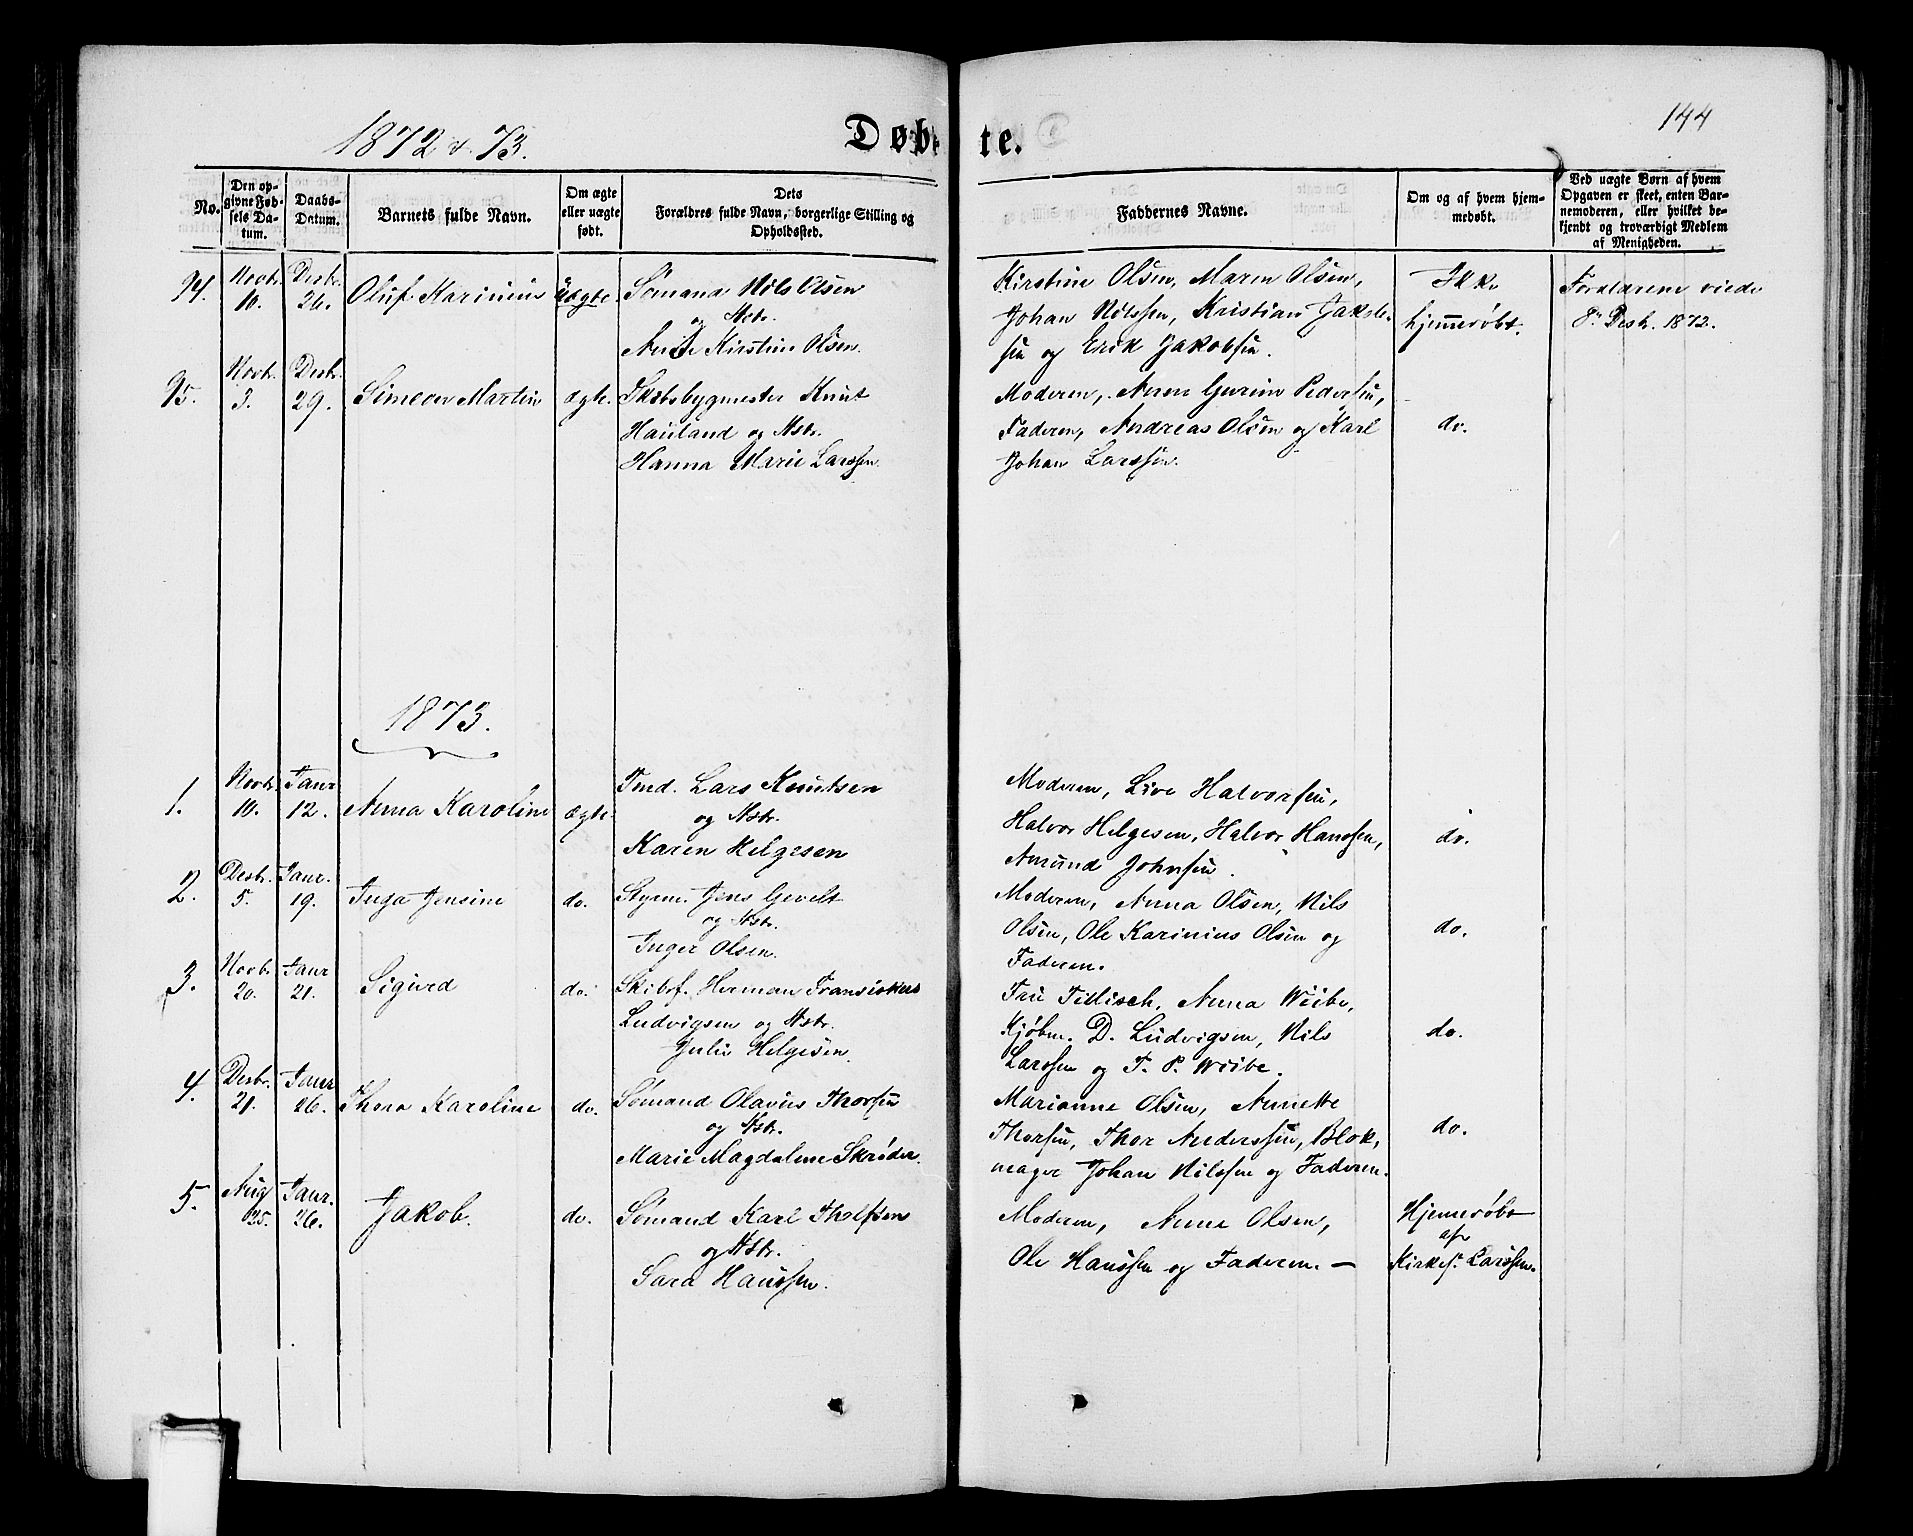 144
1872 & 73.
Døbte.
No.
Den opgivne Fødsels Datum.
Daabs-Datum.
Barnets fulde Navn.
Om ægte eller uægte født.
Dets Forældres fulde Navn, borgerlige Stilling og Opholdssted.
Faddernes Navne.
Om og af hvem hjemmedøbt.
Ved uægte Børn af hvem Opgaven er skeet, enten Barnemoderen, eller hvilket bekjendt og troværdigt Medlem af Menigheden.
94. Novbr. 10. Desbr. 26. Oluf Karinius Uægte. Sømand Nils Olsen
og Hstr.
Anne Kirstine Olsen.
Kirstine Olsen, Maren Olsen,
Johan Nilssen, Kristian Jakob-
sen og Erik Jakobsen.
Ikke
hjemmedøbt.
Forældrene viede
8de Desbr. 1872.
95. Novbr. 3. Desbr. 29. Simeon Martin ægte. Skibsbygmester Knut
Hauland og Hstr.
Hanna Marie Larssen.
Moderen, Anne Gurine Pedersen,
Faderen, Andreas Olsen og Karl
Johan Larssen.
do.
1873.
1. Novbr. 10. Janr. 12. Anna Karoline ægte. Tmd. Lars Knutsen
og Hstr.
Karen Helgesen
Moderen, Live Halvorsen,
Halvor Helgesen, Halvor Hanssen,
Amund Johnsen.
do.
2. Desbr. 5. Janr. 19. Inga Jensine do. Styrm. Jens Gevelt
og Hstr.
Inger Olsen.
Moderen, Anna Olsen, Nils
Olsen, Ole Karinius Olsen og
Faderen.
do.
3. Novbr. 20. Janr. 21. Sigurd do. Skibsf. Herman Fransiskus
Ludvigsen og Hstr.
Julie Helgesen.
Fru Tillisch, Anna Wiibe,
Kjøbm. D. Ludvigsen, Nils
Larssen og T. P. Wiibe.
do.
4. Desbr. 21. Janr. 26. Thora Karoline do. Sømand Olavus Thorsen
og Hstr.
Marie Magdalene Skrøder.
Marianne Olsen, Annette
Thorsen, Thor Anderssen, Blok-
mager Johan Nilssen og Faderen.
do.
5. Aug. 25. Janr. 26. Jakob. do. Sømand Karl Tholfsen
og Hstr.
Sara Hanssen.
Moderen, Anne Olsen,
Ole Hanssen og Faderen. —
Hjemmedøbt
af
Kirkes. Larssen.